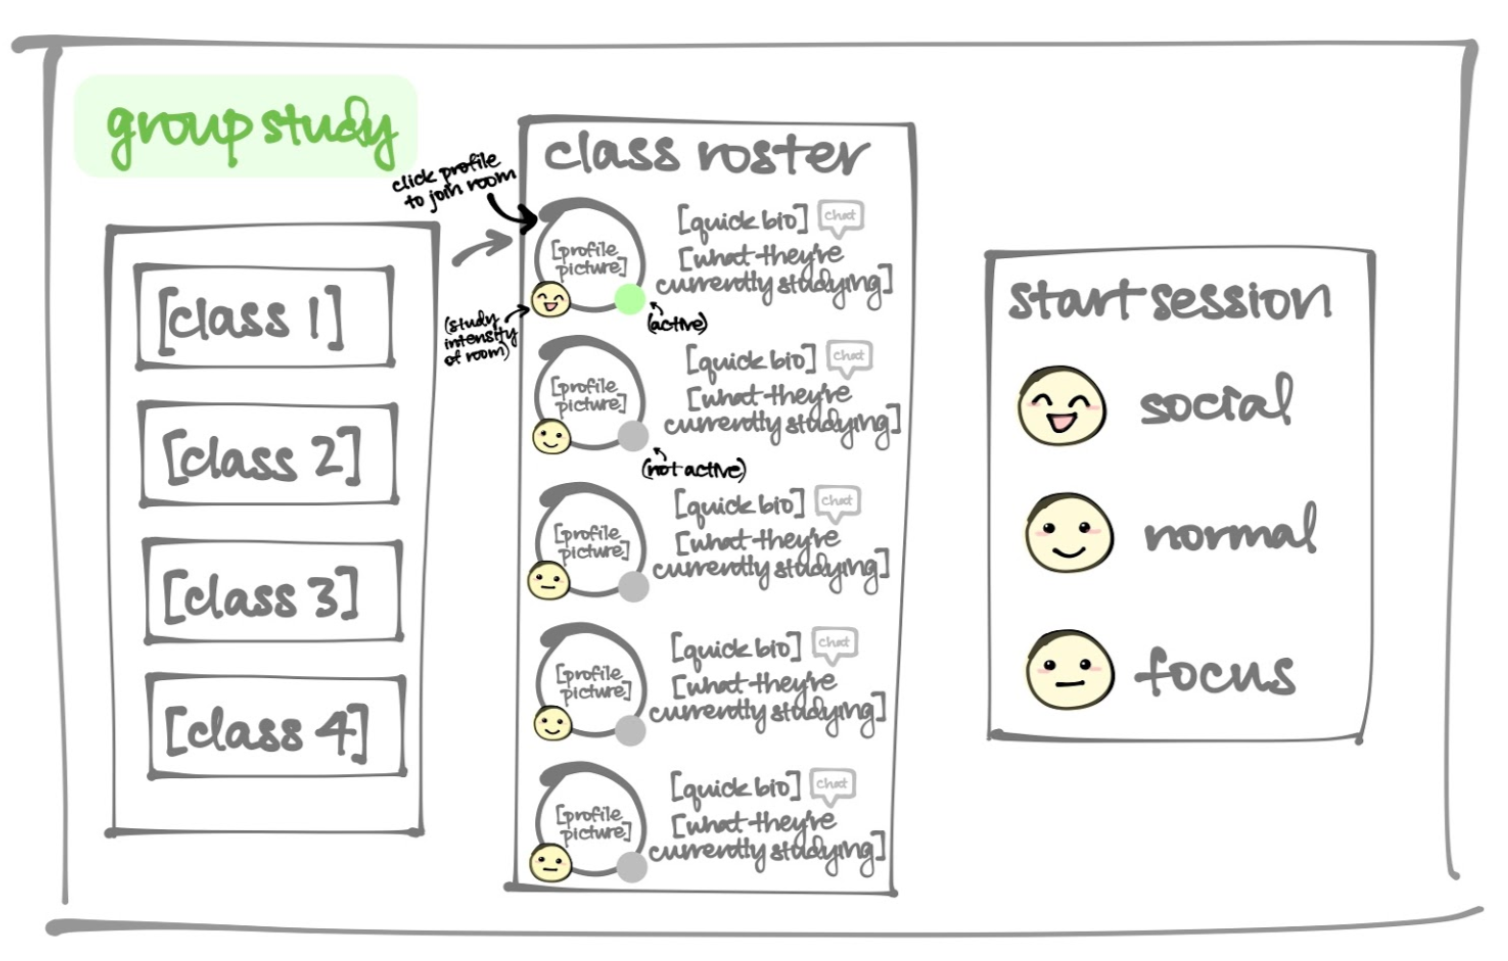 group study
[class 1]
[class 2]
[class 3]
[class 4]
click profile
to join room
class roster
[profile
picture]
[quick bio]
chat
[what they're
currently studying]
(study
intensity
of room)
(active)
[profile
picture]
[quick bio]
chat
[what they're
currently studying]
(not active)
[profile
picture]
[quick bio]
chat
[what they're
currently studying]
[profile
picture]
[quick bio]
chat
[what they're
currently studying]
[profile
picture]
[quick bio]
chat
[what they're
currently studying]
start session
social
normal
focus